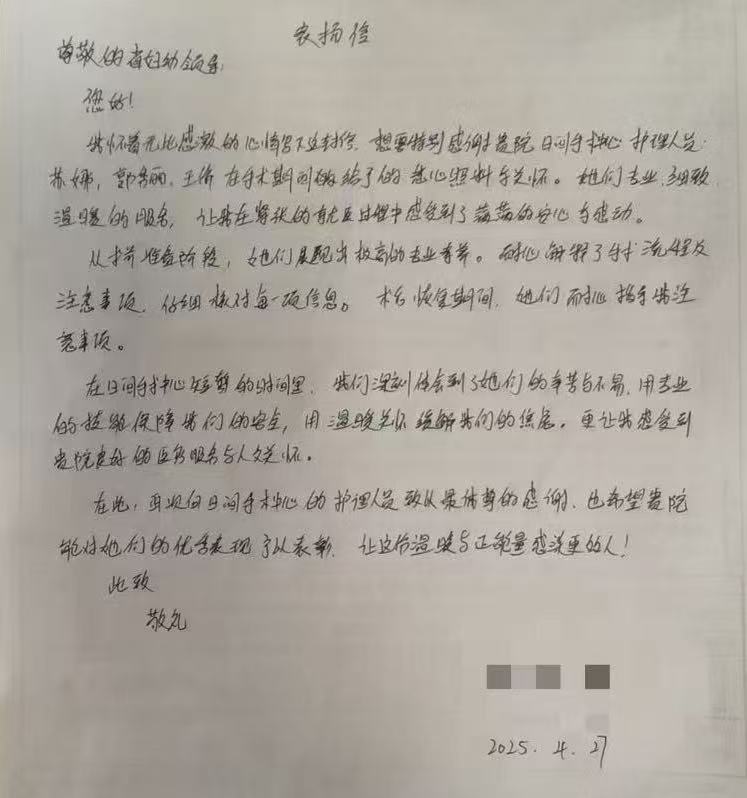 表扬信
尊敬的省妇幼领导:
您好!
我怀着无比感激的心情写下这封信,想要特别感谢贵院日间手术中心护理人员:
苏娜,郭秀丽,王侨在手术期间给了的悉心照料与关怀。她们专业、细致、
温暖的服务,让我在紧张的就医过程中感受到了满满的安心与感动。
从术前准备阶段,她们展现出极高的专业素养。耐心解释了手术流程及
注意事项,仔细核对每一项信息。术后恢复期间,她们耐心指导我注
意事项。
在日间手术中心短暂的时间里,我们深刻体会到了她们的辛苦与不易,用专业
的技能保障我们的安全,用温暖关怀缓解我们的焦虑。更让我感受到
贵院良好的医疗服务与人文关怀。
在此,再次向日间手术中心的护理人员致以最诚挚的感谢,也希望贵院
能对她们的优秀表现予以表彰,让这份温暖与正能量感染更多的人!
此致
敬礼
2025.4.27